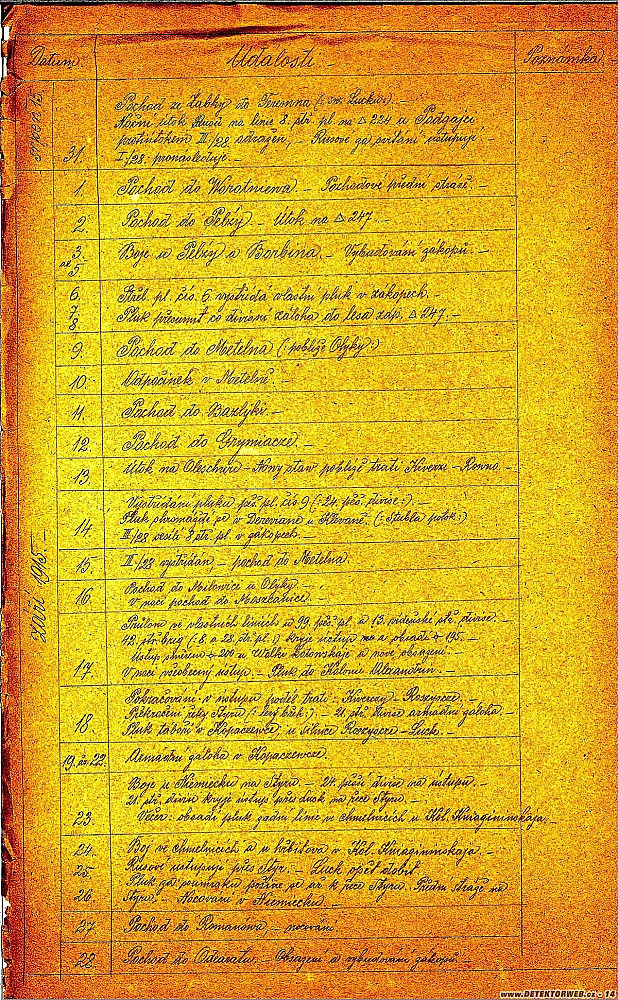 Datum. Události. Poznámka.
srpen 15
Pochod ze Zabky do Teremna (: sev. Lucku :). –
Noční útok Rusů na linie 8. stř. pl. na △ 224 u Podgajci
protiútokem III/28 odražen, – Rusové za svítání ustupují. –
31. I/28. pronásleduje. –
1. Pochod do Worotniewa. – Pochodové přední stráže. –
2. Pochod do Pelzy. – Útok na △ 247. –
3. až 5. Boje u Pelzy a Borbina. – Vybudování zákopů. –
6. Střel. pl. čís. 6. vystřídá vlastní pluk v zákopech. –
7. 8. Pluk přesunut co divisní záloha do lesa záp. △ 247. –
9. Pochod do Metelna (: poblíže Olyky :)
10. Odpočinek v Metelně. –
11. Pochod do
12. Pochod do Grymiacze. –
13. Útok na – Nowy staw poblíže trati Kiwerze – Rovno. –
Vystřídání pluku pěš. pl. čís. 9 (: 24. pěš. divise :). –
14. Pluk shromáždí se v Derewiane u Klevaně. (: Stubla potok :)
III/28 vedle 8. stř. pl. v zákopech.
15. III/28 vystřídán – pochod do Metelna.
září 1915. –
16. Pochod do u Olyky. –
V noci pochod do
Průlom ve vlastních liniích u 99. pěš. pl. a 13. vídeňské stř. divise. –
42. stř. brig. (: 8. a 28. stř. pl. :) kryje ústup a obsadí 195. –
Ústup směrem 200 u a nové obsazení. –
17. V noci všeobecný ústup. – Pluk do Kolonie Alexandrin.
Pokračování v ústupu podél trati: Kiwerzy – Rozyszcze.
Překročení řeky Styru (: levý břeh :). – 21. stř. divise armádní záloha. –
18. Pluk táboří v Kopaczewce u silnice Rozyszcze – Luck. –
19. až 22. Armádní záloha v Kopaczewce.
Boje u Niemiecku na Styru. – 24. pěší divise na ústupu. –
21. stř. divise kryje ústup přes na řece Styru. –
23. Večer: obsadí pluk zadní linie ve chmelnicích u Kol. Kniagininskaja. –
24. Boj ve chmelnicích a u hřbitova v Kol. Kniagininskaja. –
25. Rusové ustupují přes Styr. – Luck opět dobit. –
Pluk za soumraku až k řece Styru. Přední stráže na
26. Styru. – Nocování v Niemiecku. –
27. Pochod do Romanówa, – nocování.
28. Pochod do – Obsazení a vybudování zákopů. –
www.DETEKTORWEB.cz - 14